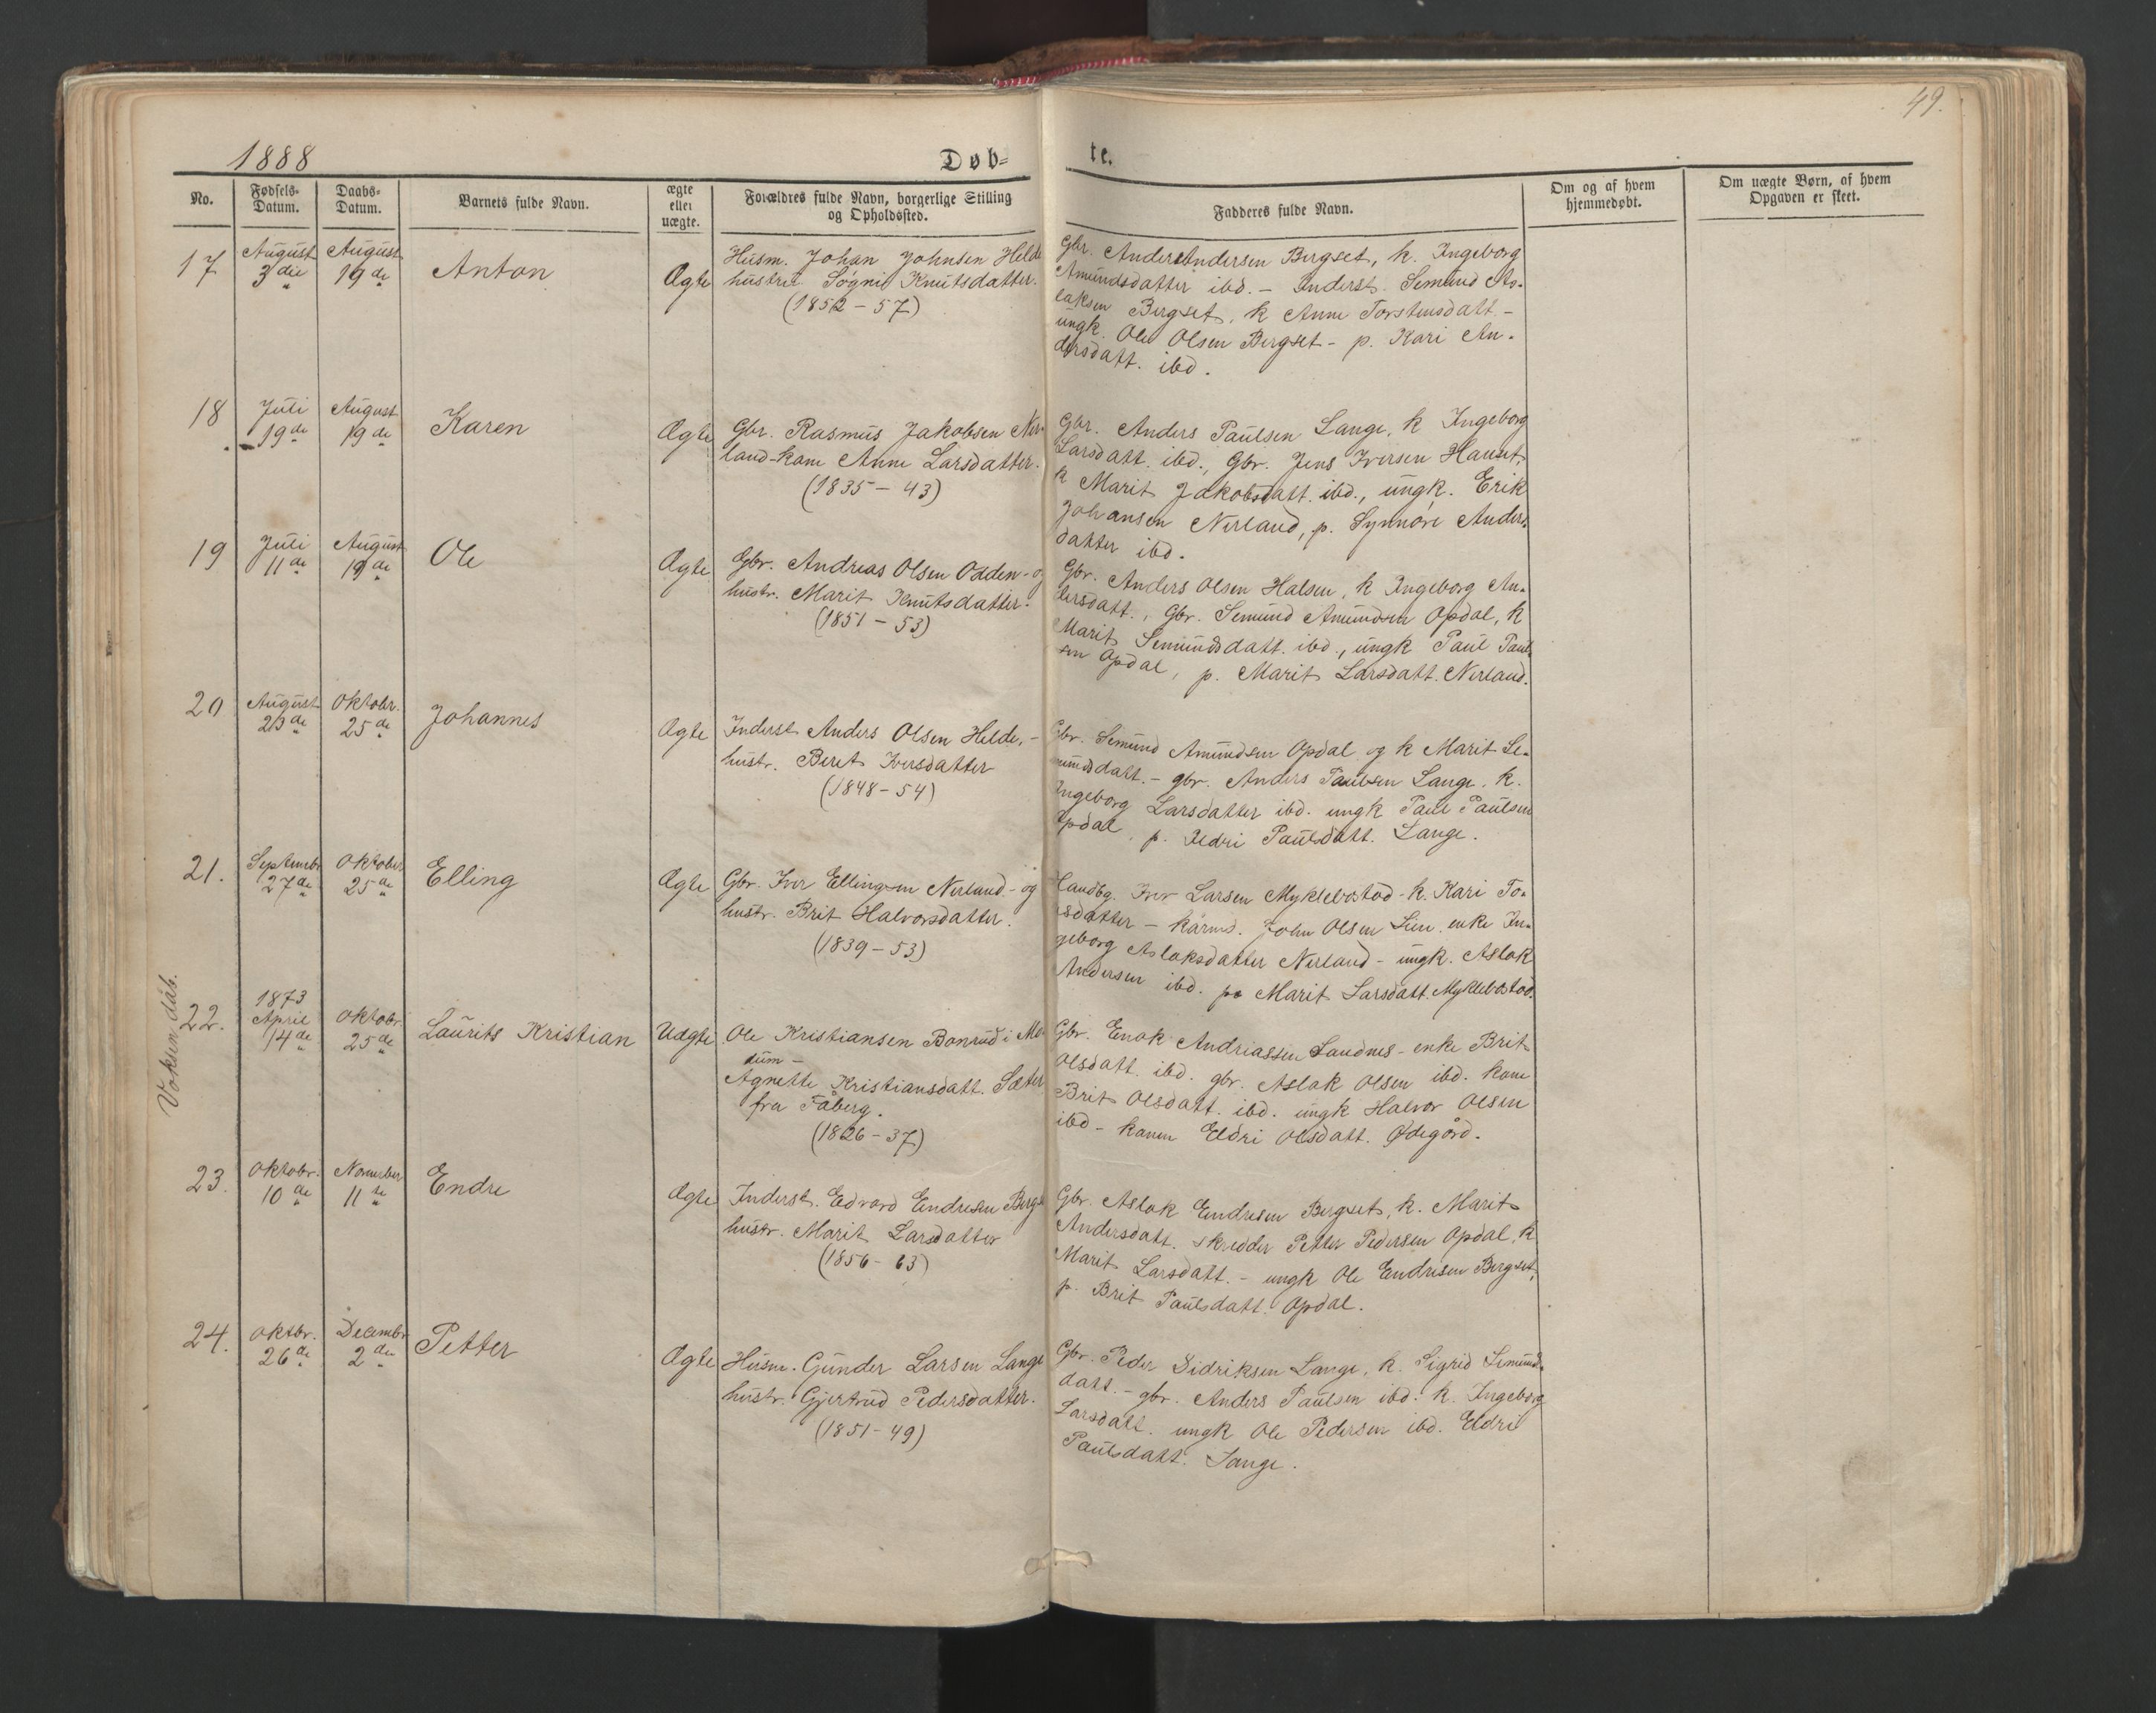 49.
1888
Døb-
te.
No.
Fødsels-
Datum.
Daabs-
Datum.
Barnets fulde Navn.
ægte
eller
uægte.
Forældres fulde Navn, borgerlige Stilling
og Opholdssted.
Fadderes fulde Navn.
Om og af hvem
hjemmedøbt.
Om uægte Børn, af hvem
Opgaven er skeet.
17
August
3die
August
19de
Anton
Ægte
Husm. Johan Johnsen Helde
hustru Søgni Knutsdatter.
(1852 - 57)
Gbr. Anders Andersen Bergset, k. Ingeborg
Amundsdatter ibd. - Inderst. Semund As-
laksen Bergset, k Anne Torstensdatt. -
ungk. Ole Olsen Bergset - p. Kari An-
dersdatt. ibd.
18
Juli
19de
August
19de
Karen
Ægte
Gbr. Rasmus Jakobsen Ner-
land - kone Anne Larsdatter.
(1835 - 43)
Gbr. Anders Paulsen Lange, k Ingeborg
Larsdatt. ibd., Gbr. Jens Iversen
k Marit Jakobsdatt. ibd., ungk. Erik
Johansen Nerland, p. Synnøve Anders-
datter ibd.
19
Juli
11de
August
19de
Ole
Ægte
Gbr. Andreas Olsen Odden - og
hustr. Marit Knutsdatter.
(1851 - 53)
Gbr. Anders Olsen Halsen, k Ingeborg An-
dersdatt., Gbr. Semund Amundsen Opdal, k
Marit Semundsdatt. ibd., ungk Paul Paul-
sen Opdal, p. Marit Larsdatt. Nerland.
20
August
23de
Oktobr.
25de
Johannes
Ægte
Inderst Anders Olsen Helde, -
hustr. Beret Iversdatter
(1848 - 54)
Gbr. Semund Amundsen Opdal og k Marit Se-
mundsdatt. - gbr. Anders Paulsen Lange, k.
Ingeborg Larsdatter ibd. ungk Paul Paulsen
Opdal, p. Eldri Paulsdatt. Lange.
21.
Septembr
27de
Oktober
25de
Elling
Ægte
Gbr. Iver Ellingsen Nerland - og
hustr. Brit Halvorsdatter.
(1839 - 53)
Handbg. Iver Larsen Myklebostad - k. Kari To-
sdatter - kårmd. John Olsen Lien, enke In-
geborg Aslaksdatter Nerland - ungk. Aslak
Andersen ibd. p. Marit Larsdatt. Myklebostad.
Voksen dåb.
22.
1873
April
14de
Oktobr
25de
Laurits Kristian
Uægte
Ole Kristiansen Bonrud i Mo-
dum -
Agnette Kristiansdatt. Sæter
fra Fåberg.
(1826 - 37)
Gbr. Enok Andriassen Sandnes - enke Brit
Olsdatt. ibd. gbr. Aslak Olsen ibd. kone
Brit Olsdatt. ibd. ungk Halvor Olsen
ibd - konen Eldri Olsdatt. Ødegård.
23.
Oktobr.
10de
November
11te
Endre
Ægte
Inderst. Edvard Endresen Bergs
hustr. Marit Larsdatter
(1856 - 63)
Gbr. Aslak Endresen Bergset, k. Marit
Andersdatt. skredder Petter Pedersen Opdal, k
Marit Larsdatt. - ungk Ole Endresen Bergset,
p. Brit Paulsdatt. Opdal.
24.
Oktbr.
26de
Decembr
2den
Petter
Ægte
Husm. Gunder Larsen Lange
hustr. Gjertrud Pedersdatter.
(1851 - 49)
Gbr. Peder Didriksen Lange, k. Sigrid Semund-
datt. - gbr. Anders Paulsen ibd. k. Ingeborg
Larsdatt. ungk Ole Pedersen ibd. Eldri
Paulsdatt. Lange.